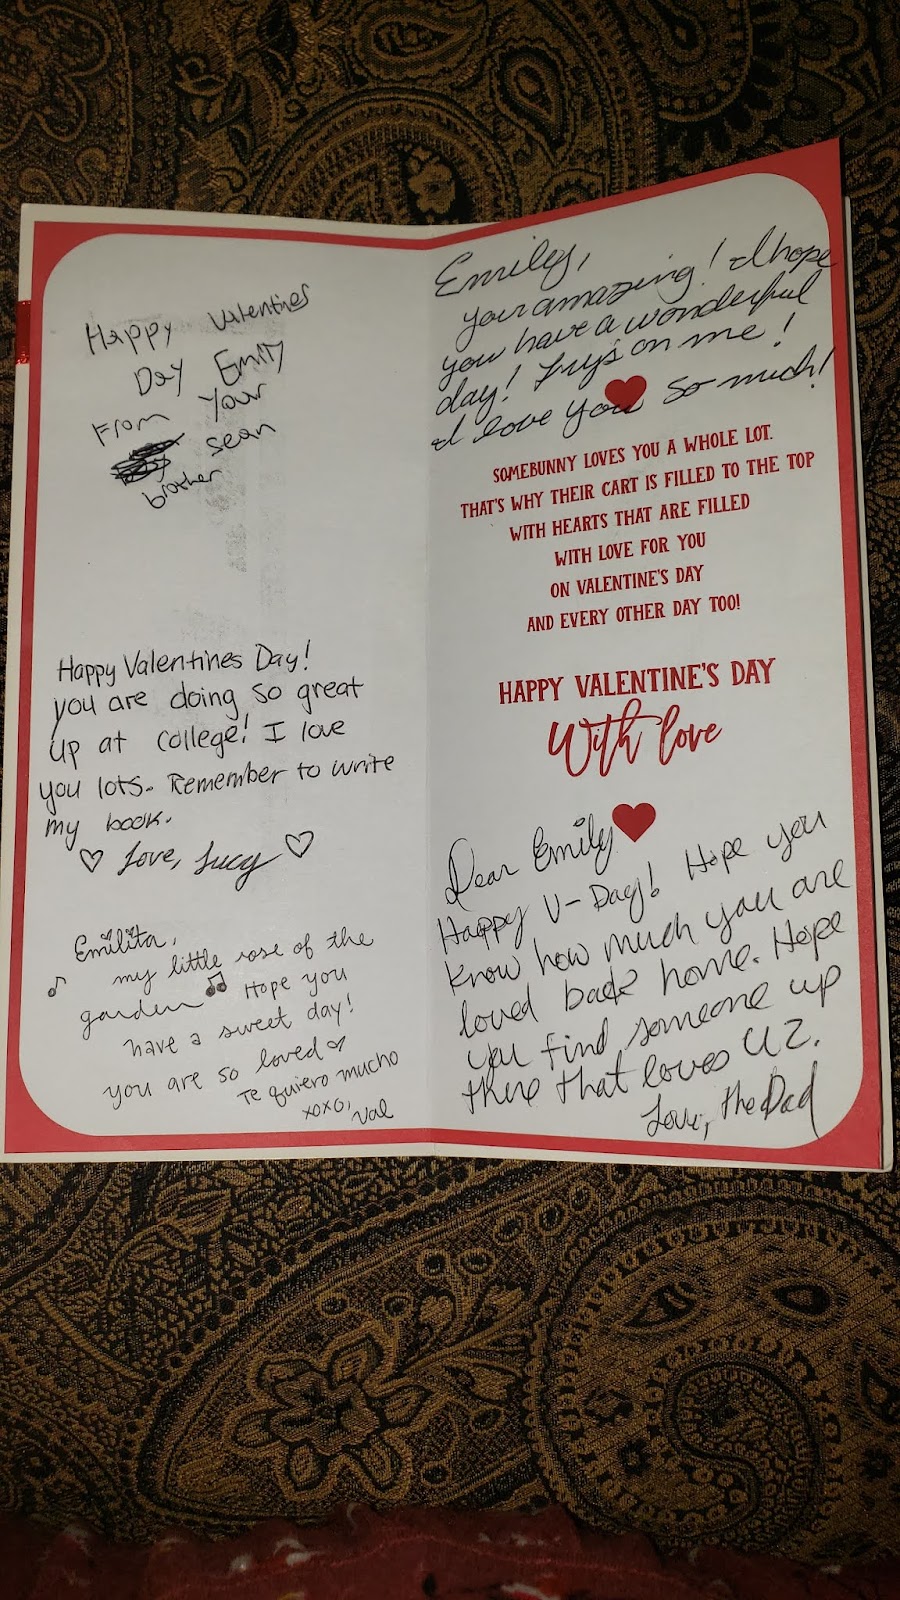 Happy Valentines
Day Emily
From Your
sean
brother
Happy Valentines Day!
you are doing so great
up at college! I love
you lots. Remember to write
my book.
Love, Lucy
Emilita,
my little rose of the
garden Hope you
have a sweet day!
you are so loved
Te quiero mucho
xoxo,
Val
Emily,
your amazing! I hope
you have a wonderful
day! on me!
I love you so much!
SOMEBUNNY LOVES YOU A WHOLE LOT.
THAT'S WHY THEIR CART IS FILLED TO THE TOP
WITH HEARTS THAT ARE FILLED
WITH LOVE FOR YOU
ON VALENTINE'S DAY
AND EVERY OTHER DAY TOO!
HAPPY VALENTINE'S DAY
With love
Dear Emily
Happy V-Day! Hope you
know how much you are
loved back home. Hope
you find someone up
there that loves U2.
Love, the Dad